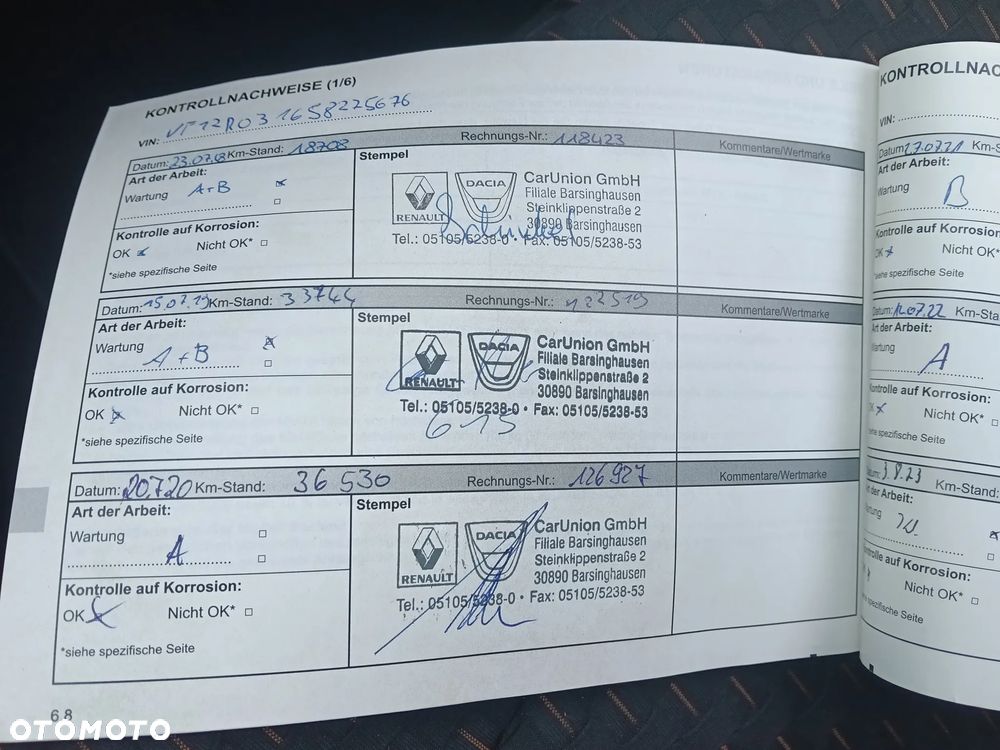 KONTROLLNACHWEISE (1/6)
VIN: VF12R031658225676
Datum: 23.07.18 Km-Stand: 18708 Rechnungs-Nr.: 118423 Kommentare/Wertmarke
Art der Arbeit:
Wartung A+B
Kontrolle auf Korrosion:
OK Nicht OK*
*siehe spezifische Seite
Stempel
RENAULT DACIA
CarUnion GmbH
Filiale Barsinghausen
Steinklippenstraße 2
30890 Barsinghausen
Tel.: 05105/5238-0 • Fax: 05105/5238-53
Datum: 15.07.19 Km-Stand: 33744 Rechnungs-Nr.: 122519 Kommentare/Wertmarke
Art der Arbeit:
Wartung
A+B
Kontrolle auf Korrosion:
OK Nicht OK*
*siehe spezifische Seite
Stempel
RENAULT DACIA
CarUnion GmbH
Filiale Barsinghausen
Steinklippenstraße 2
30890 Barsinghausen
Tel.: 05105/5238-0 • Fax: 05105/5238-53
615
Datum: 20.7.20 Km-Stand: 36 530 Rechnungs-Nr.: 126927 Kommentare/Wertmarke
Art der Arbeit:
Wartung
A
Kontrolle auf Korrosion:
OK Nicht OK*
*siehe spezifische Seite
Stempel
RENAULT DACIA
CarUnion GmbH
Filiale Barsinghausen
Steinklippenstraße 2
30890 Barsinghausen
Tel.: 05105/5238-0 • Fax: 05105/5238-53
68
KONTROLLNAC
VIN:
Datum: 27.07.21 Km-S
Art der Arbeit:
Wartung
B
Kontrolle auf Korrosion:
OK Nicht OK*
*siehe spezifische Seite
Datum: 12.07.22 Km-Sta
Art der Arbeit:
Wartung
A
Kontrolle auf Korrosion:
OK Nicht OK*
*siehe spezifische Seite
3.8.23 Km-Stand:
der Arbeit:
Kontrolle auf Korrosion:
Nicht OK*
*siehe spezifische Seite
OTOMOTO